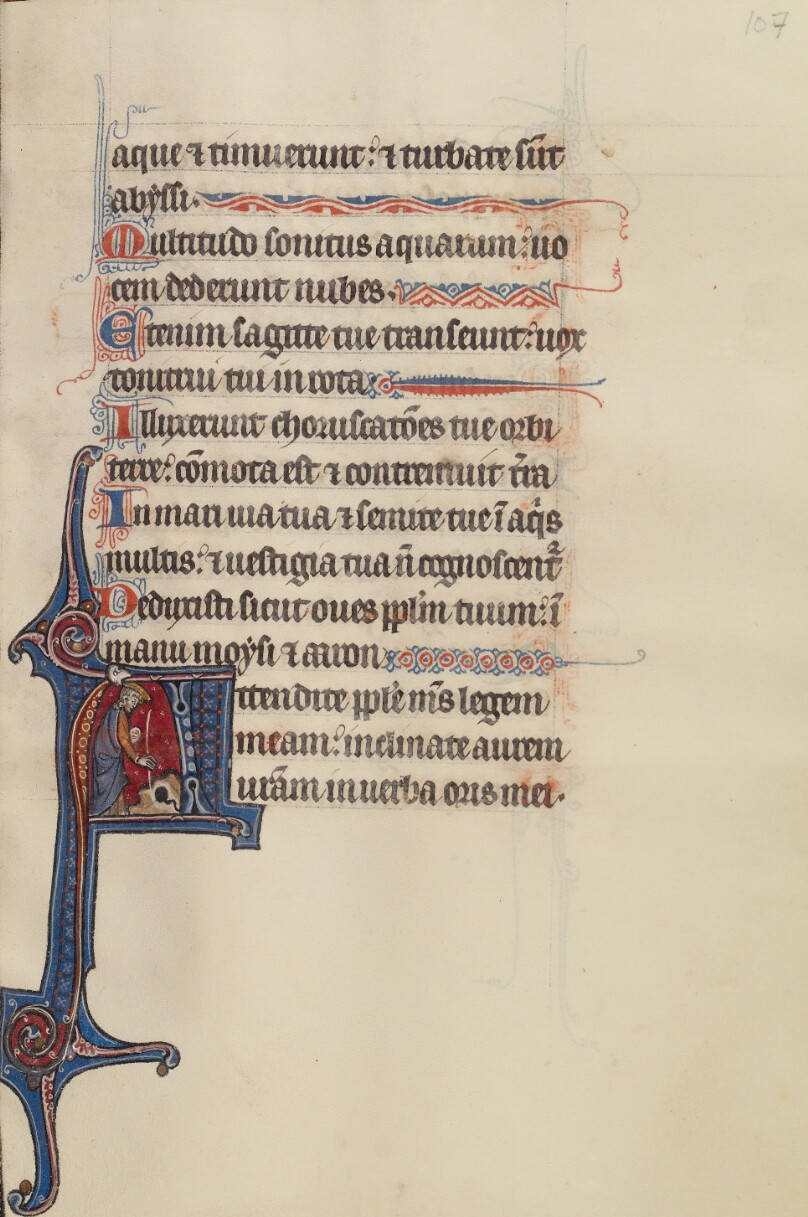 107
aque ⁊ timuerunt: ⁊ turbate sūt
abẏssi.
Multitudo sonitus aquarum: uo
cem dederunt nubes.
Etenim sagitte tue transeunt: uox
tonitrui tui in rota
Illuxerunt choruscatōes tue orbi
terre: cōmota est ⁊ contremuit t̄ra
In mari uia tua ⁊ semite tue ī aq̇s
multis: ⁊ uestigia tua n̄ cognoscent᷑
Deduxisti sicut oues pp̄lm tuum: ī
manu moẏsi ⁊ aaron
Attendite pp̄le m̄s legem
meam: inclinate aurem
ur̄am in uerba oris mei.